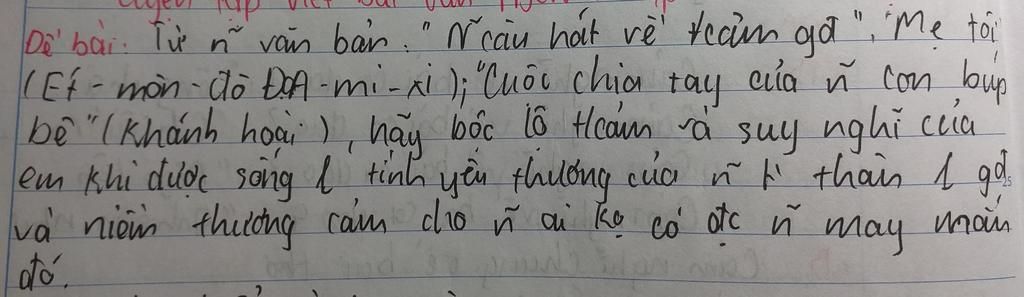 Đề bài: Từ ñ văn bản: "Ñ câu hát về t/cảm gđ", "Mẹ tôi
(Ét-môn-đô ĐOA-mi-xi); "Cuộc chia tay của ñ con búp
bê" (Khánh Hoài), hãy bộc lộ t/cảm và suy nghĩ của
em khi được sống tình yêu thương của ñ thân gđ
và niềm thương cảm cho ñ ai ko có đc ñ may mắn
đó.